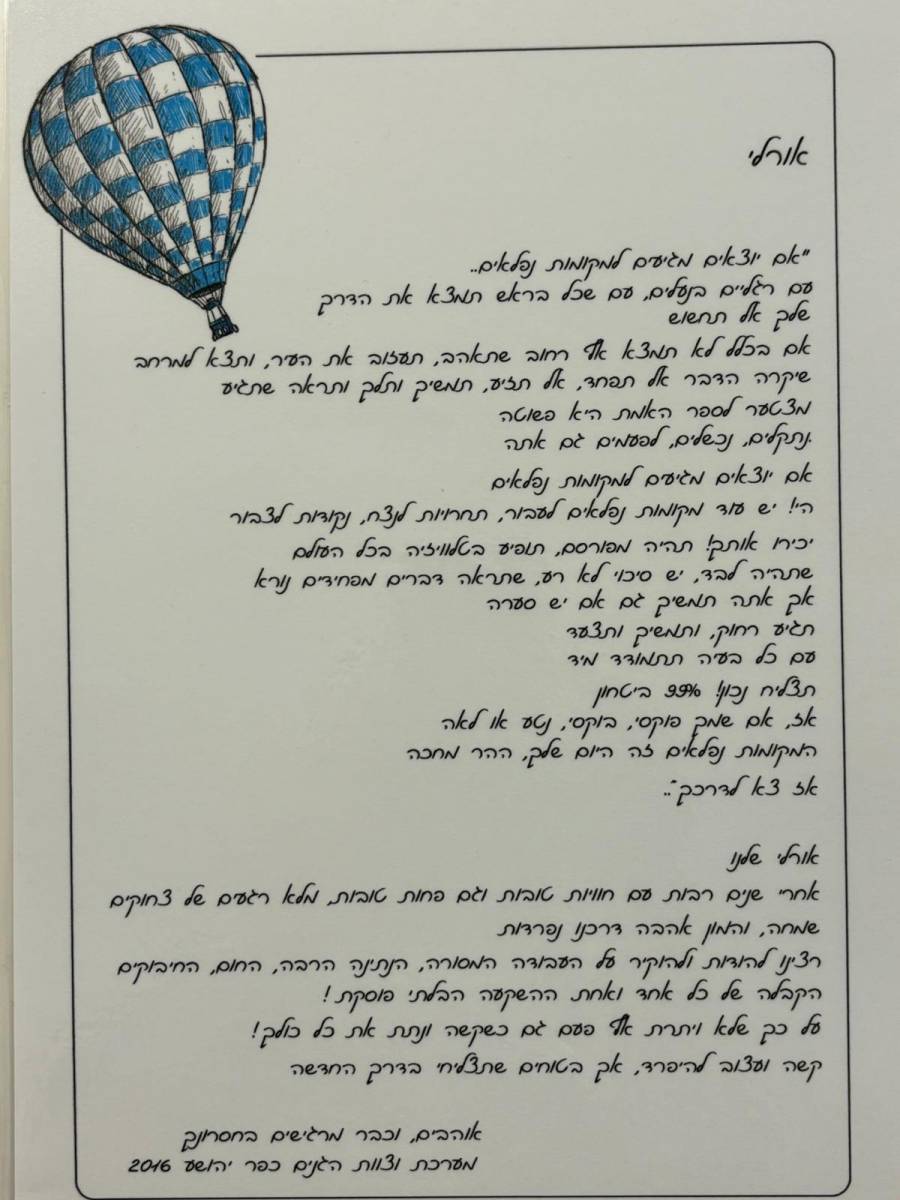 אורלי
"אם יוצאים מגיעים למקומות נפלאים..
עם רגליים בנעלים, עם שכל בראש תמצא את הדרך
שלך אל תחשוש
אם בכלל לא תמצא אף רחוב שתאהב, תעזוב את העיר, ותצא למרחב
שיקרה הדבר אל תפחד, אל תזיע, תמשיך ותלך ותראה שתגיע
מצטער לספר האמת היא פשוטה
נתקלים, נכשלים, לפעמים גם אתה.
אם יוצאים מגיעים למקומות נפלאים
הי! יש עוד מקומות נפלאים לעבור, תחרויות לנצח, נקודות לצבור
יכירו אותך! תהיה מפורסם, תופיע בטלוויזיה בכל העולם
שתהיה לבד, יש סיכוי לא רע, שתראה דברים מפחידים נורא
אך אתה תמשיך גם אם יש סערה
תגיע רחוק, ותמשיך ותצעד
עם כל בעיה תתמודד מיד
תצליח נכון! 99% ביטחון
אז, אם שמך פוקסי, בוקסי, נטע או לאה
המקומות נפלאים זה היום שלך, ההר מחכה
אז צא לדרכך"..
אורלי שלנו
אחרי שנים רבות עם חוויות טובות וגם פחות טובות, מלא רגעים של צחוקים
שמחה, והמון אהבה דרכנו נפרדות
רצינו להודות ולהוקיר על העבודה המסורה, הנתינה הרבה, החום, החיבוקים
הקבלה של כל אחד ואחת ההשקעה הבלתי פוסקת !
על כך שלא ויתרת אף פעם גם כשקשה ונתת את כל כולך!
קשה ועצוב להיפרד, אך בטוחים שתצליחי בדרך החדשה
אוהבים, וכבר מרגישים בחסרונך
מערכת וצוות הגנים כפר יהושע 2016